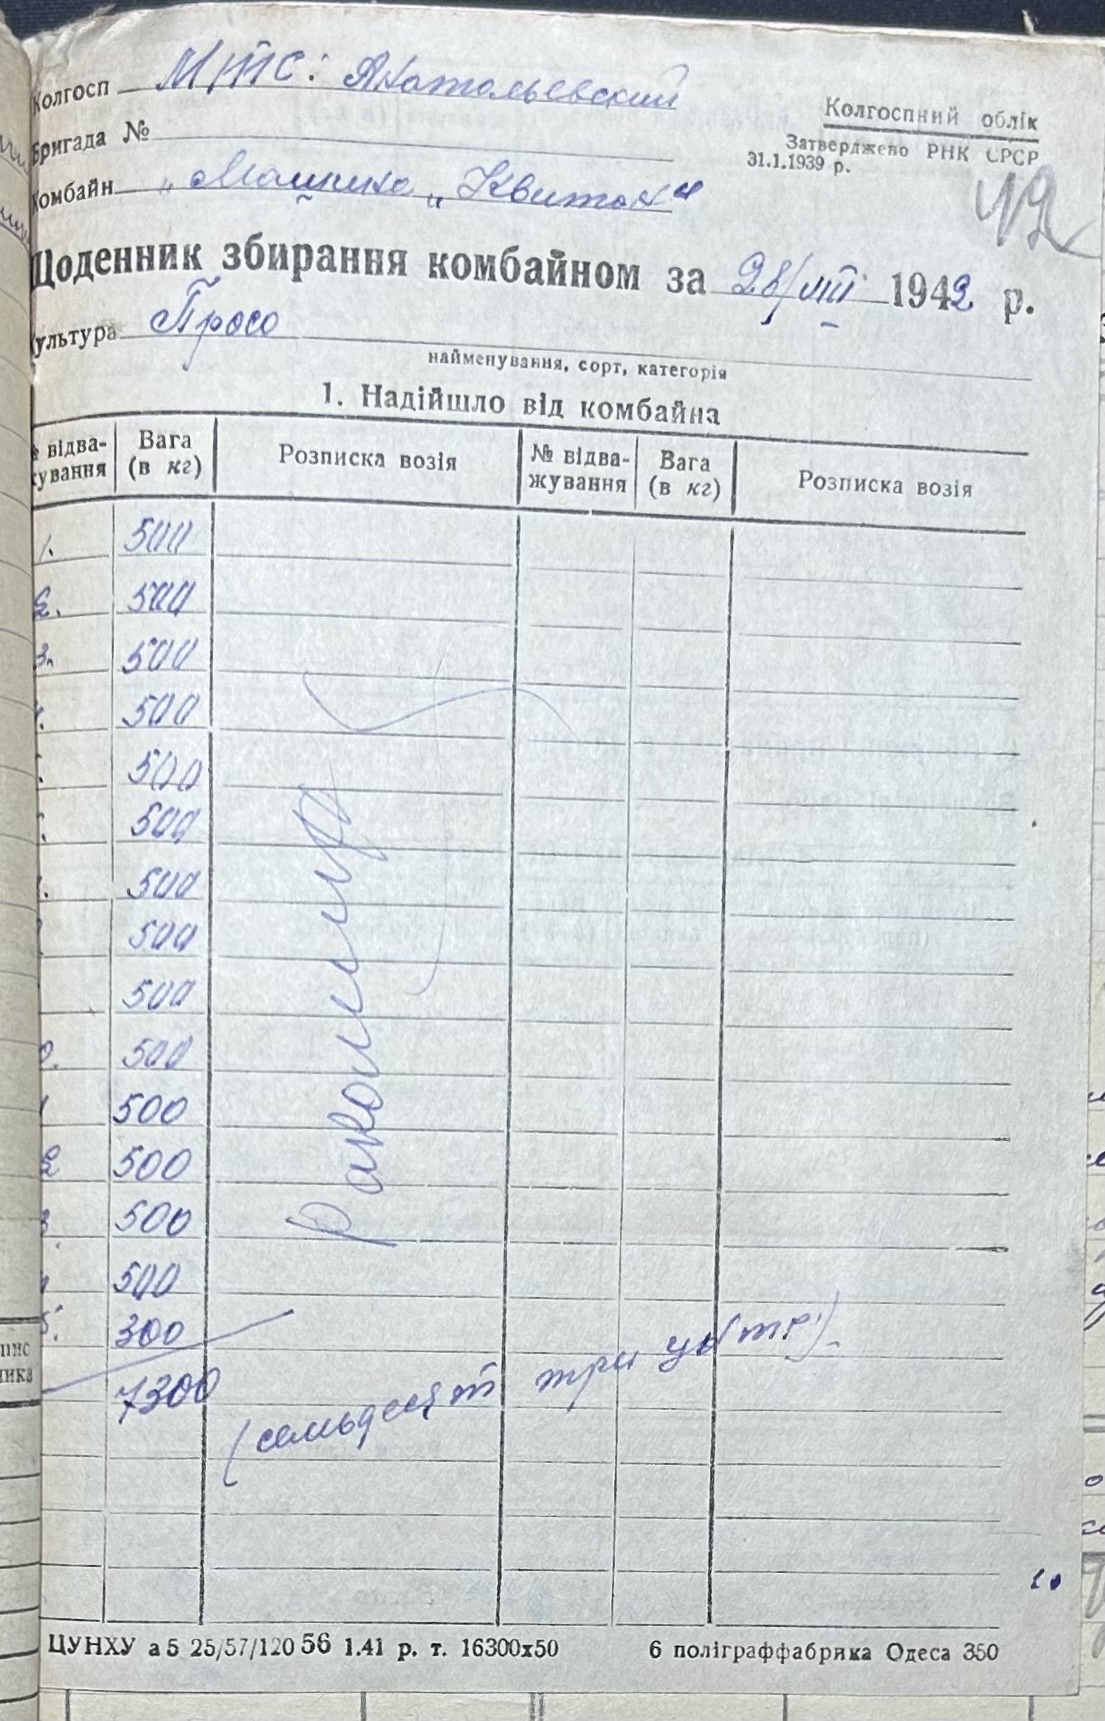 Колгосп МТС: Анатольевский
Бригада №
Комбайн „Машина „Квиток"
Колгоспний облік
Затверджено РНК СРСР
31.1.1939 р.
42
Щоденник збирання комбайном за 28/VIII 1942 р.
Культура Просо
найменування, сорт, категорія
1. Надійшло від комбайна
№ відва-жування Вага (в кг) Розписка возія № відва-жування Вага (в кг) Розписка возія
1. 500
2. 500
3. 500
500
500
500
500
500
500
0. 500
1 500
2 500
3. 500
500
5. 300
7300
(семьдесят три цнтр.)
ЦУНХУ а5 25/57/120 56 1.41 р. т. 16300х50 6 поліграффабрика Одеса 350